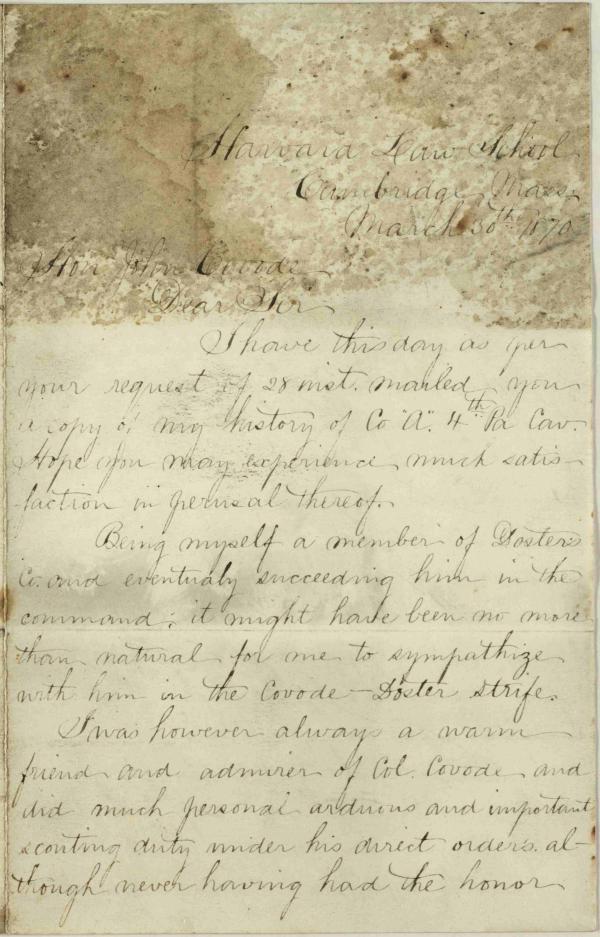 Harvard Law School
Cambridge, Mass.
March 30th 1870
Hon John Covode
Dear Sir
I have this day as per
your request of 28 inst. mailed you
a copy of my history of Co "A". 4th Pa Cav.
Hope you may experience much satis-
faction in perusal thereof.
Being myself a member of Doster's
Co. and eventualy succeeding him in the
command; it might have been no more
than natural for me to sympathize
with him in the Covode-Doster strife.
I was however always a warm
friend and admirer of Col. Covode and
did much personal arduous and important
scouting duty under his direct orders. al-
though never having had the honor